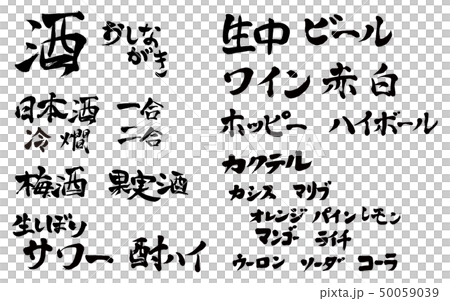 酒 おしながき
日本酒 一合
冷 燗 二合
梅酒 果実酒
生しぼり
サワー 酎ハイ
生中 ビール
ワイン 赤 白
ホッピー ハイボール
カクテル
カシス マリブ
オレンジ パイン レモン
マンゴー ライチ
ウーロン ソーダ コーラ
pixta.jp - 50059039